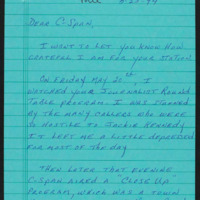 5-21-94
Dear C-Span,
I want to let you know how
grateful I am for your station.
On Friday May 20th, I
watched your Journalist Round
Table program. I was stunned
by the many callers who were
so hostile to Jackie Kennedy
It left me a little depressed
for most of the day.
Then later that evening
C-Span aired a "Close Up"
program, which was a town